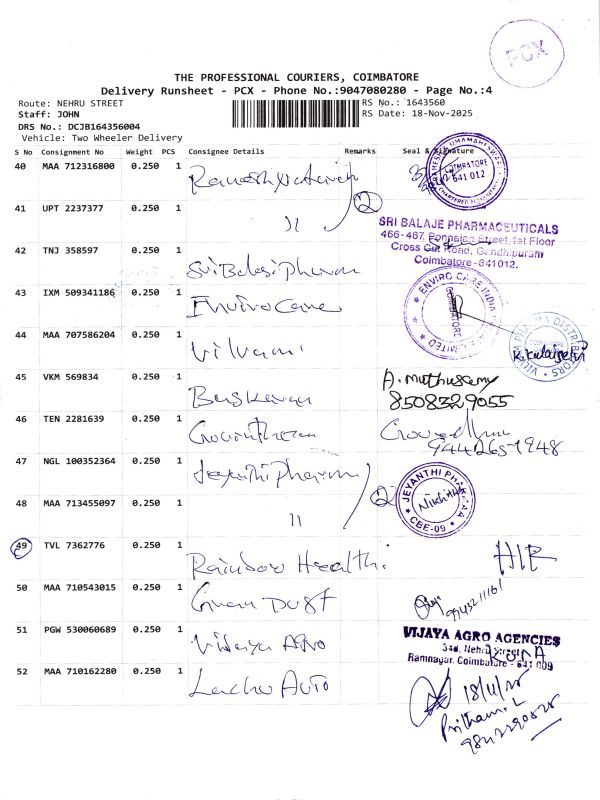 PCX
THE PROFESSIONAL COURIERS, COIMBATORE
Delivery Runsheet - PCX - Phone No.:9047080280 - Page No.:4
Route: NEHRU STREET
RS No.: 1643560
Staff: JOHN
RS Date: 18-Nov-2025
DRS No.: DCJB164356004
Vehicle: Two Wheeler Delivery
S No Consignment No Weight PCS Consignee Details Remarks Seal & Signature
40 MAA 712316800 0.250 1
COIMBATORE 641 012 CHARTERED ACCOUNTANTS
2
41 UPT 2237377 0.250 1 "
SRI BALAJE PHARMACEUTICALS
466-467, Ponnaian Street, 1st Floor
Cross Cut Road, Gandhipuram
Coimbatore-641012.
42 TNJ 358597 0.250 1 Sri Balaji Pharma
43 IXM 509341186 0.250 1 Enviro Care
ENVIRO CARE INDIA LIMITED COIMBATORE
44 MAA 707586204 0.250 1
PHARMA DISTRIBUTORS
K. Kalaiselvi
45 VKM 569834 0.250 1 Baskaran
A. Muthusamy
8508329055
46 TEN 2281639 0.250 1
9442651948
47 NGL 100352364 0.250 1 Jeyanthi Pharma
2
JEYANTHI PHARMAA CBE-09
48 MAA 713455097 0.250 1 "
49 TVL 7362776 0.250 1 Rainbow Health
50 MAA 710543015 0.250 1
51 PGW 530060689 0.250 1 Vijaya Agro
VIJAYA AGRO AGENCIES
346, Nehru Street
Ramnagar, Coimbatore - 641 009
52 MAA 710162280 0.250 1 Auto
18/11/25
Pritham. L